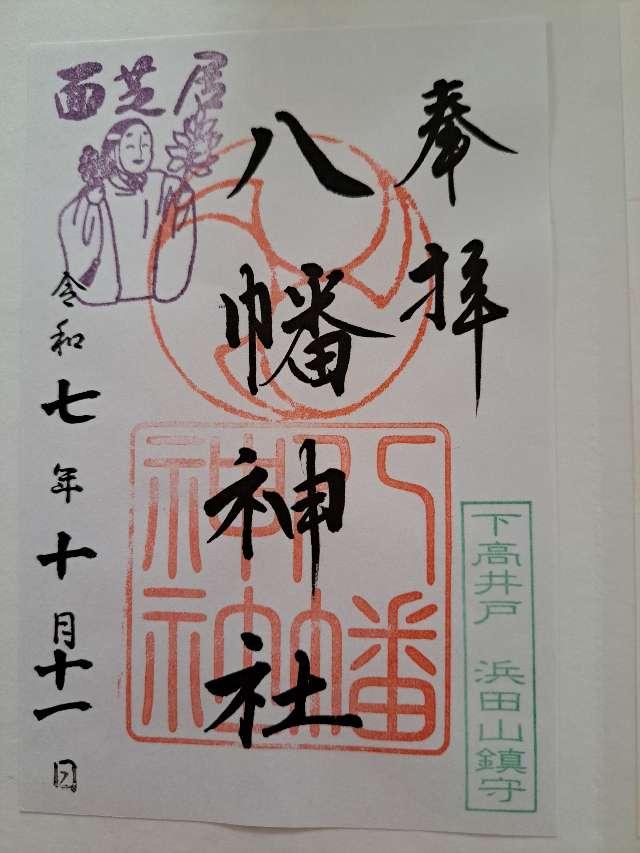 奉拝
下高井戸 浜田山鎮守
八幡神社
八幡神社
面芝居
令和七年十月十一日